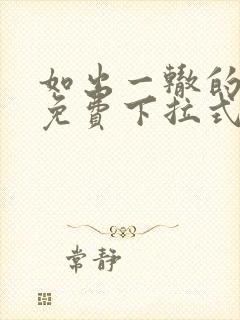 如出一辙的
免费下拉式
常静